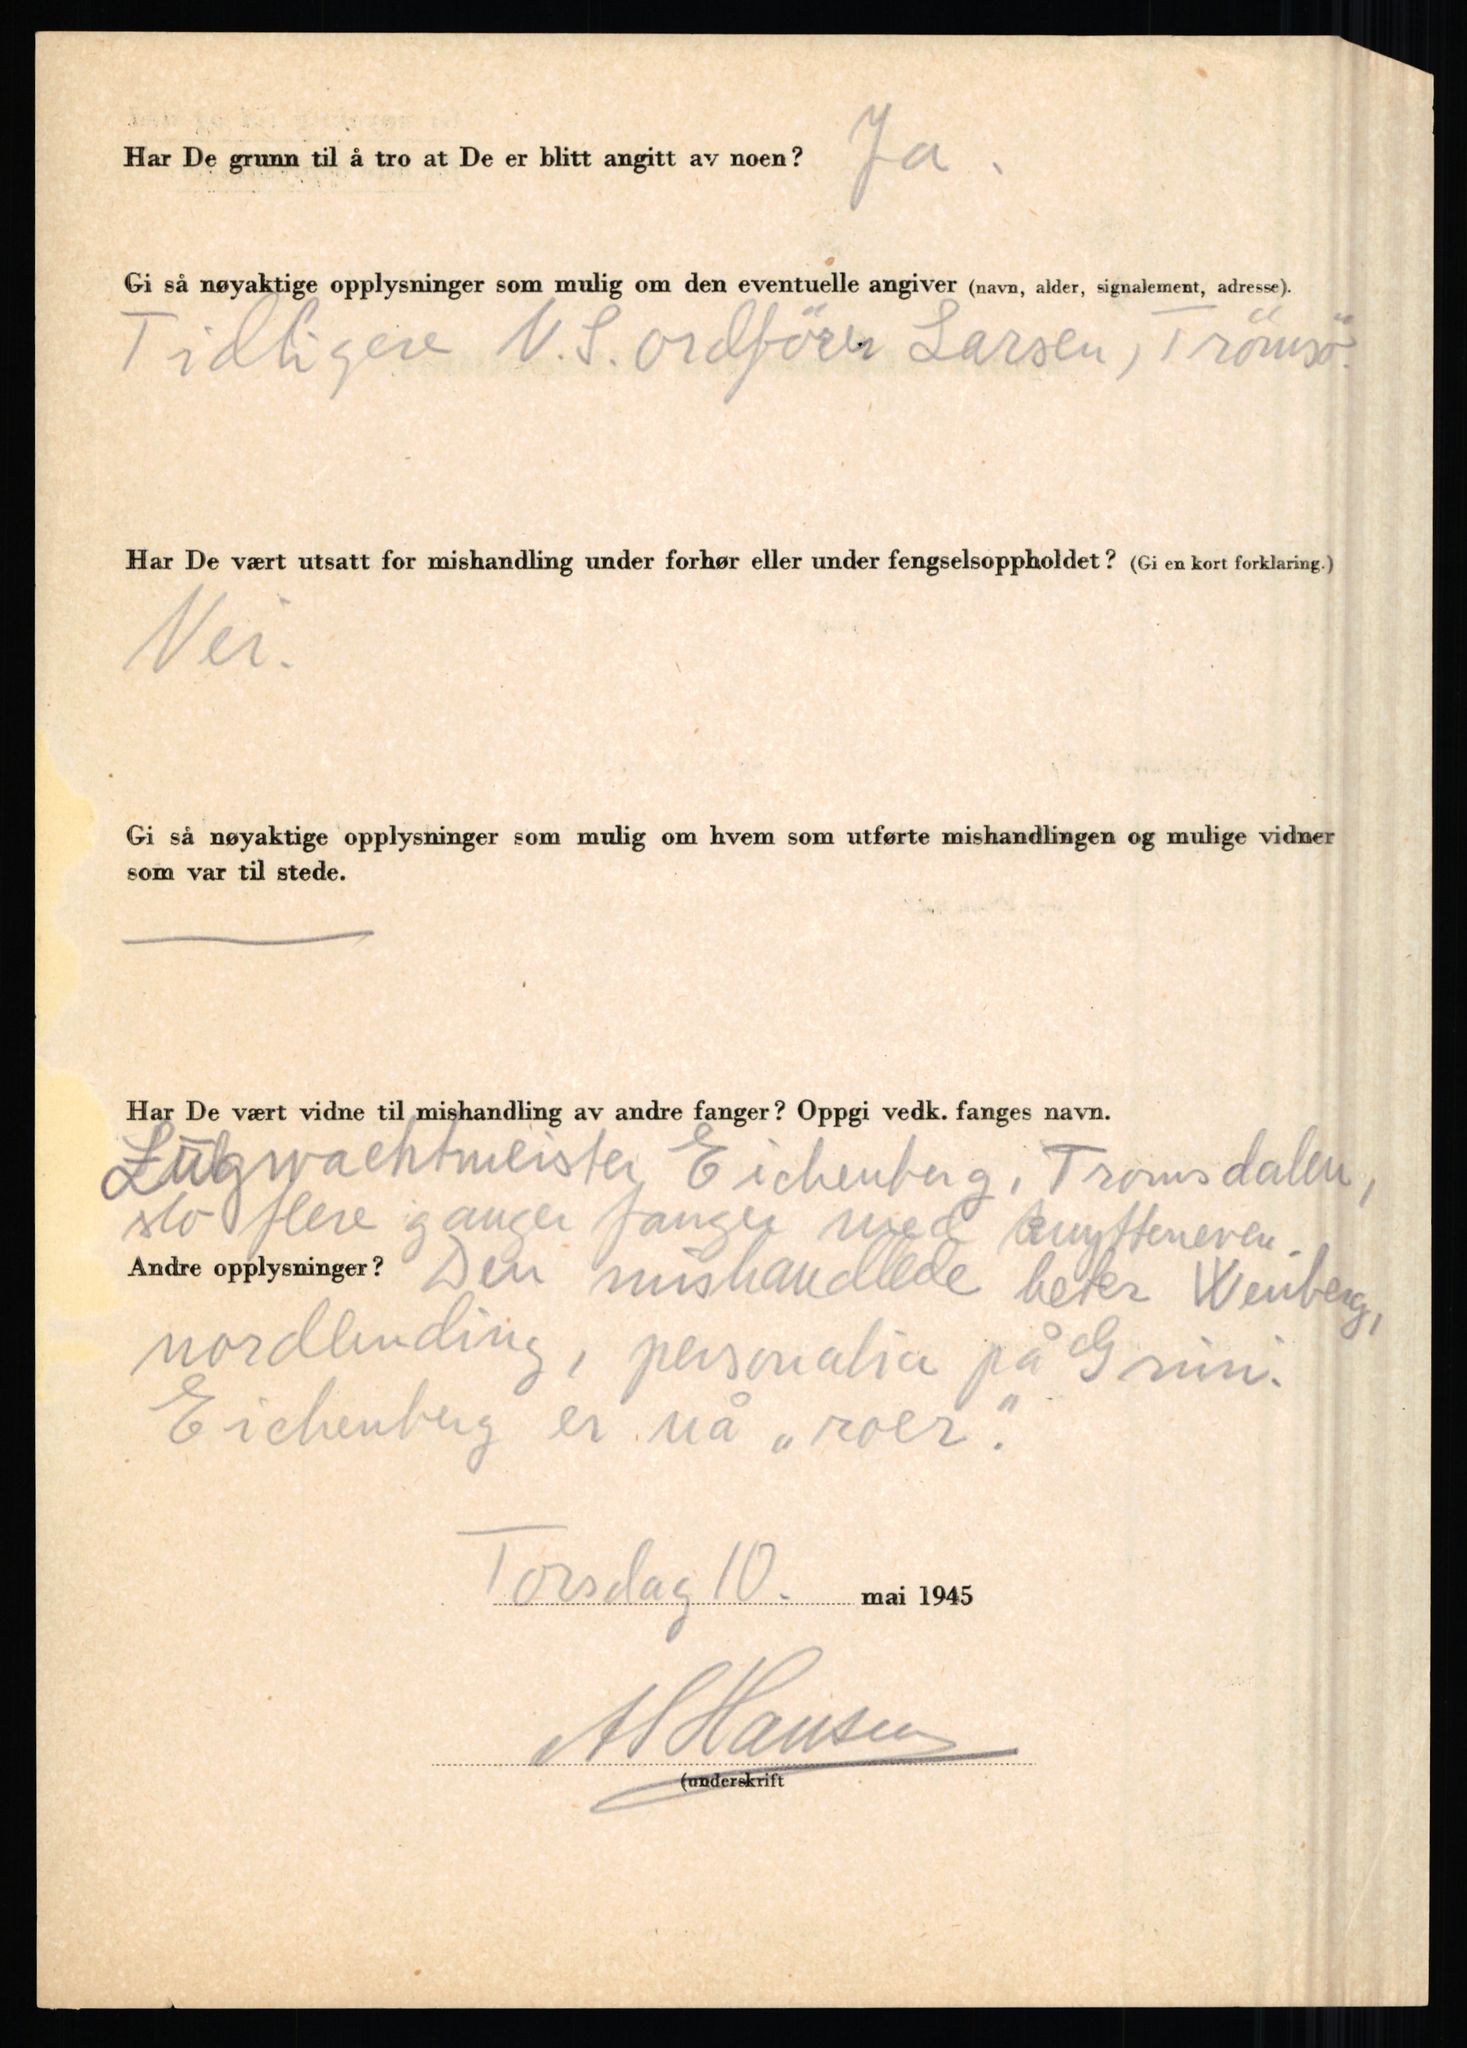 Har De grunn til å tro at De er blitt angitt av noen? Ja.
Gi så nøyaktige opplysninger som mulig om den eventuelle angiver (navn, alder, signalement, adresse).
Tidligere N.S. ordförer Larsen, Trömsö.
Har De vært utsatt for mishandling under forhør eller under fengselsoppholdet? (Gi en kort forklaring.)
Nei.
Gi så nøyaktige opplysninger som mulig om hvem som utførte mishandlingen og mulige vidner
som var til stede.
Har De vært vidne til mishandling av andre fanger? Oppgi vedk. fanges navn.
Zugwachtmeister Eichenberg, Tromsdalen,
slo flere ganger fanger med knyttneven.
Andre opplysninger? Den mishandlede heter Weinberg,
nordlending, personalia på Grini.
Eichenberg er nå „roer".
Torsdag 10. mai 1945
A Hansen
(underskrift